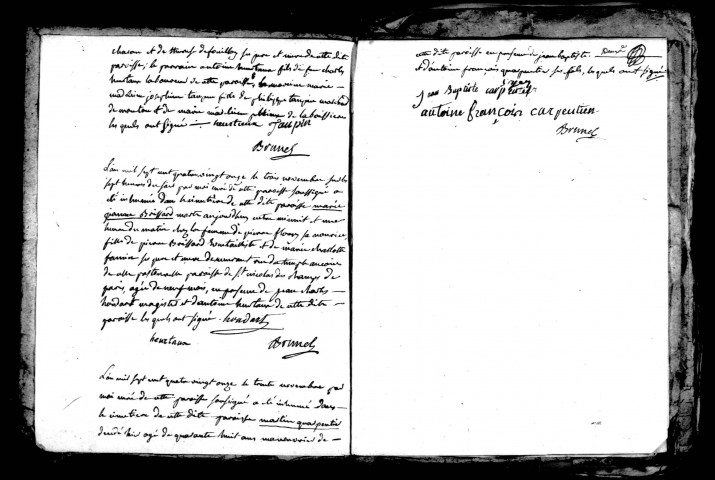 chasson et de
paroisse; le parrain antoine heurtaux fils de feu charles
heurtaux laboureur de cette paroisse la marraine marie
madelaine josephine taupin fille de philippe taupin marchand
de mouton et de marie madelaine de la boissiere
lesquels ont signé heurtaux Taupin
Brunel
L'an mil sept cent quatre vingt onze le trois novembre sur les
sept heures du soir par moi curé de cette paroisse soussigné a
été inhumée dans le cimetiere de cette dite paroisse marie
jeanne Boissard morte aujourdhui entre minuit et une
heure du matin chez la femme de pierre sa nourice
fille de pierre Boissard et de marie charlotte
ses pere et mere demeurant rue du temple
de cette paroisse de St nicolas des champs de
paris, agée de neuf mois, en presence de jean charles
houdart magister et d'antoine heurtaux de cette dite
paroisse lesquels ont signé. houdart
heurtaux Brunel
L'an mil sept cent quatre vingt onze le trente novembre par
moi curé de cette paroisse soussigné a été inhumé dans
le cimetiere de cette dite paroisse martin quarpentier
decedé hier agé de quarante huit ans manouvrier de
cette dite paroisse en presence de jean baptiste
et d'antoine françois quarpentier ses fils, lesquels ont signé
Jean Baptiste carpentier
antoine françois carpentier
Brunel